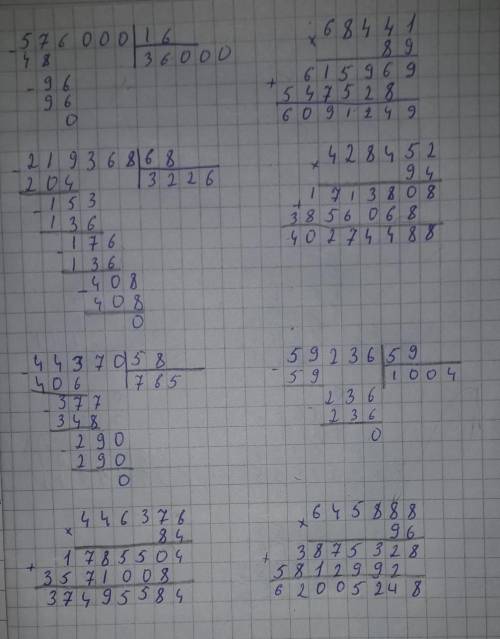 - 576000 | 16
48 | 36000
- 96
96
0
× 68441
89
+ 615969
547528
6091249
- 219368 | 68
204 | 3226
- 153
136
- 176
136
- 408
408
0
× 428452
94
+ 1713808
3856068
40274488
- 44370 | 58
406 | 765
- 377
348
- 290
290
0
- 59236 | 59
59 | 1004
- 236
236
0
× 446376
84
+ 1785504
3571008
37495584
× 645888
96
+ 3875328
5812992
62005248